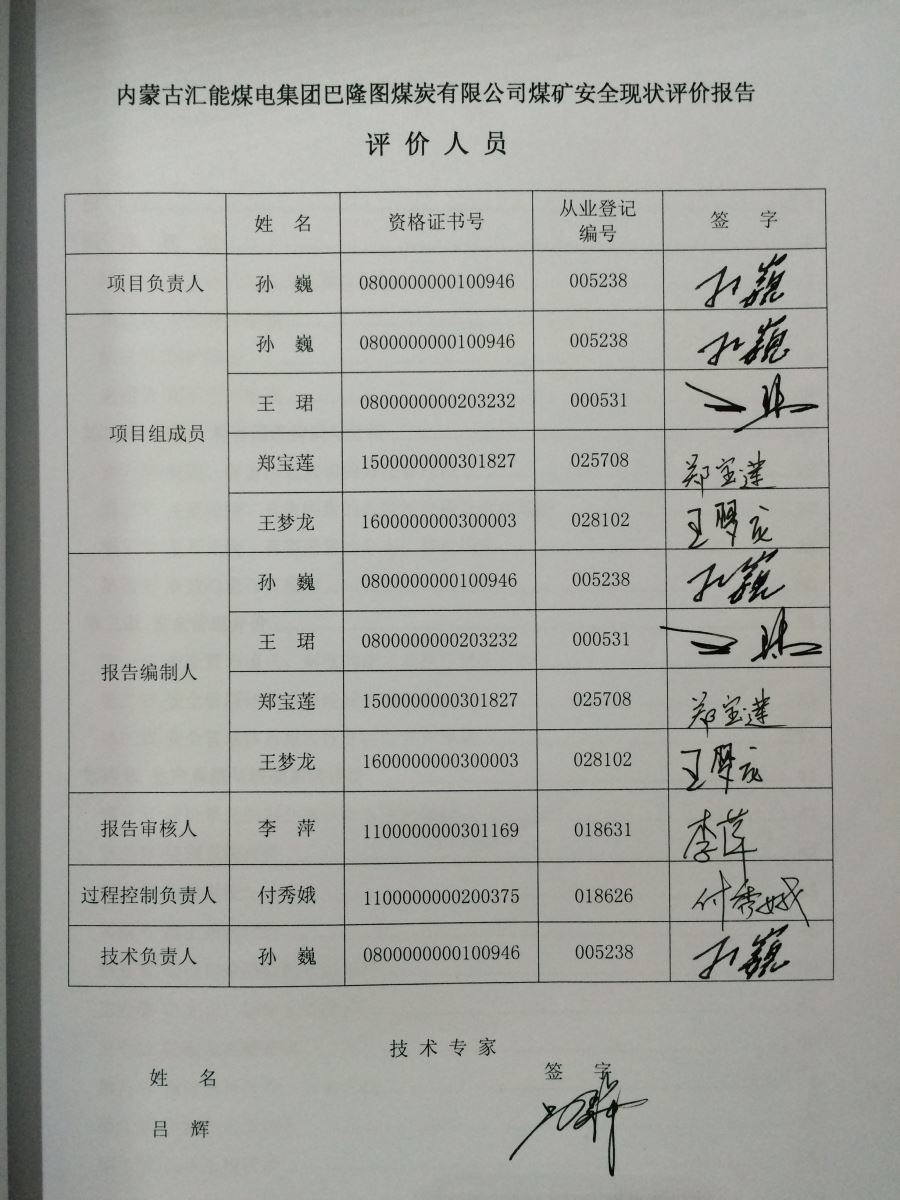 内蒙古汇能煤电集团巴隆图煤炭有限公司煤矿安全现状评价报告
评价人员
姓 名 资格证书号 从业登记编号 签 字
项目负责人 孙 巍 0800000000100946 005238 孙巍
项目组成员 孙 巍 0800000000100946 005238 孙巍
王 珺 0800000000203232 000531 王珺
郑宝莲 1500000000301827 025708 郑宝莲
王梦龙 1600000000300003 028102 王梦龙
报告编制人 孙 巍 0800000000100946 005238 孙巍
王 珺 0800000000203232 000531 王珺
郑宝莲 1500000000301827 025708 郑宝莲
王梦龙 1600000000300003 028102 王梦龙
报告审核人 李 萍 1100000000301169 018631 李萍
过程控制负责人 付秀娥 1100000000200375 018626 付秀娥
技术负责人 孙 巍 0800000000100946 005238 孙巍
技术专家
姓 名 签 字
吕 辉 吕辉